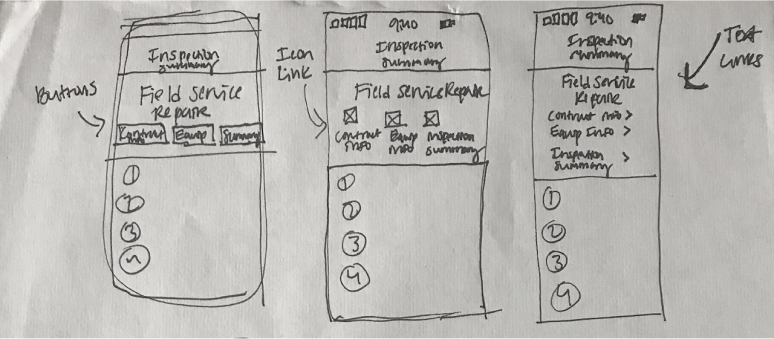 Buttons
Inspection
Summary
Field Service
Repair
Contract
Info
Equip
Summary
1
2
3
4
Icon
Link
9:40
Inspection
Summary
Field Service Repair
Contract
Info
Equip
Info
Inspection
Summary
1
2
3
4
9:40
Inspection
Summary
Field Service
Repair
Contract Info >
Equip Info >
Inspection >
Summary
1
2
3
4
Text
Links